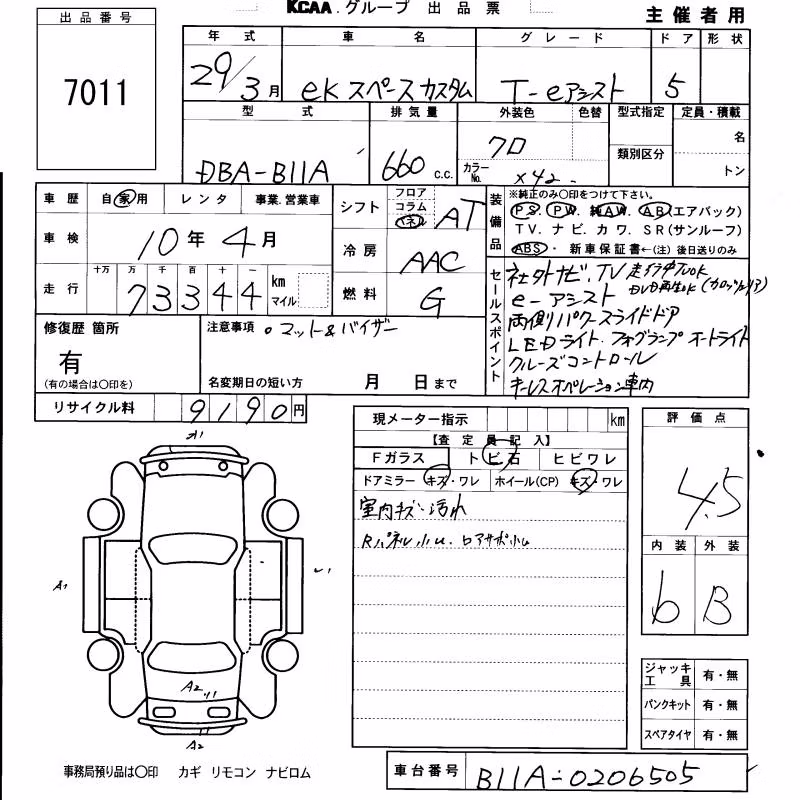 KCAA.グループ 出品票
主催者用
出品番号
7011
年式 車名 グレード ドア 形状
29/3月 ekスペースカスタム T-eアシスト 5
型式 排気量 外装色 色替 型式指定 定員・積載
DBA-B11A 660 c.c. クロ 類別区分 名
カラーNo. X42 トン
車歴 自家用 レンタ 事業.営業車
車検 10年4月
走行 十万 万 千 百 十 一
73344 km マイル
シフト フロア コラム パネル AT
冷房 AAC
燃料 G
装備品
※純正のみ○印をつけて下さい。
PS. PW. 純AW. AB(エアバック)
TV. ナビ. カワ. SR(サンルーフ)
ABS・ 新車保証書←(注)後日送りのみ
セールスポイント
社外ナビ.TV 走行中TVOK
DVD再生OK
e-アシスト
両側パワースライドドア
LEDライト.フォグランプ オートライト
クルーズコントロール
キーレスオペレーション車内
修復歴 箇所
有
(有の場合は○印を)
注意事項 ・マット&バイザー
名変期日の短い方 月 日まで
リサイクル料 9190円
現メーター指示 km
【査定員記入】
Fガラス トビ石 ヒビワレ
ドアミラー キズ・ワレ ホイール(CP) キズ・ワレ
室内キズ・汚れ
Rパネル小U. ロアサポ小U
評価点
4.5
内装 外装
b B
A1
A2
A2
ジャッキ工具 有・無
パンクキット 有・無
スペアタイヤ 有・無
事務局預り品は○印 カギ リモコン ナビロム
車台番号 B11A-0206505